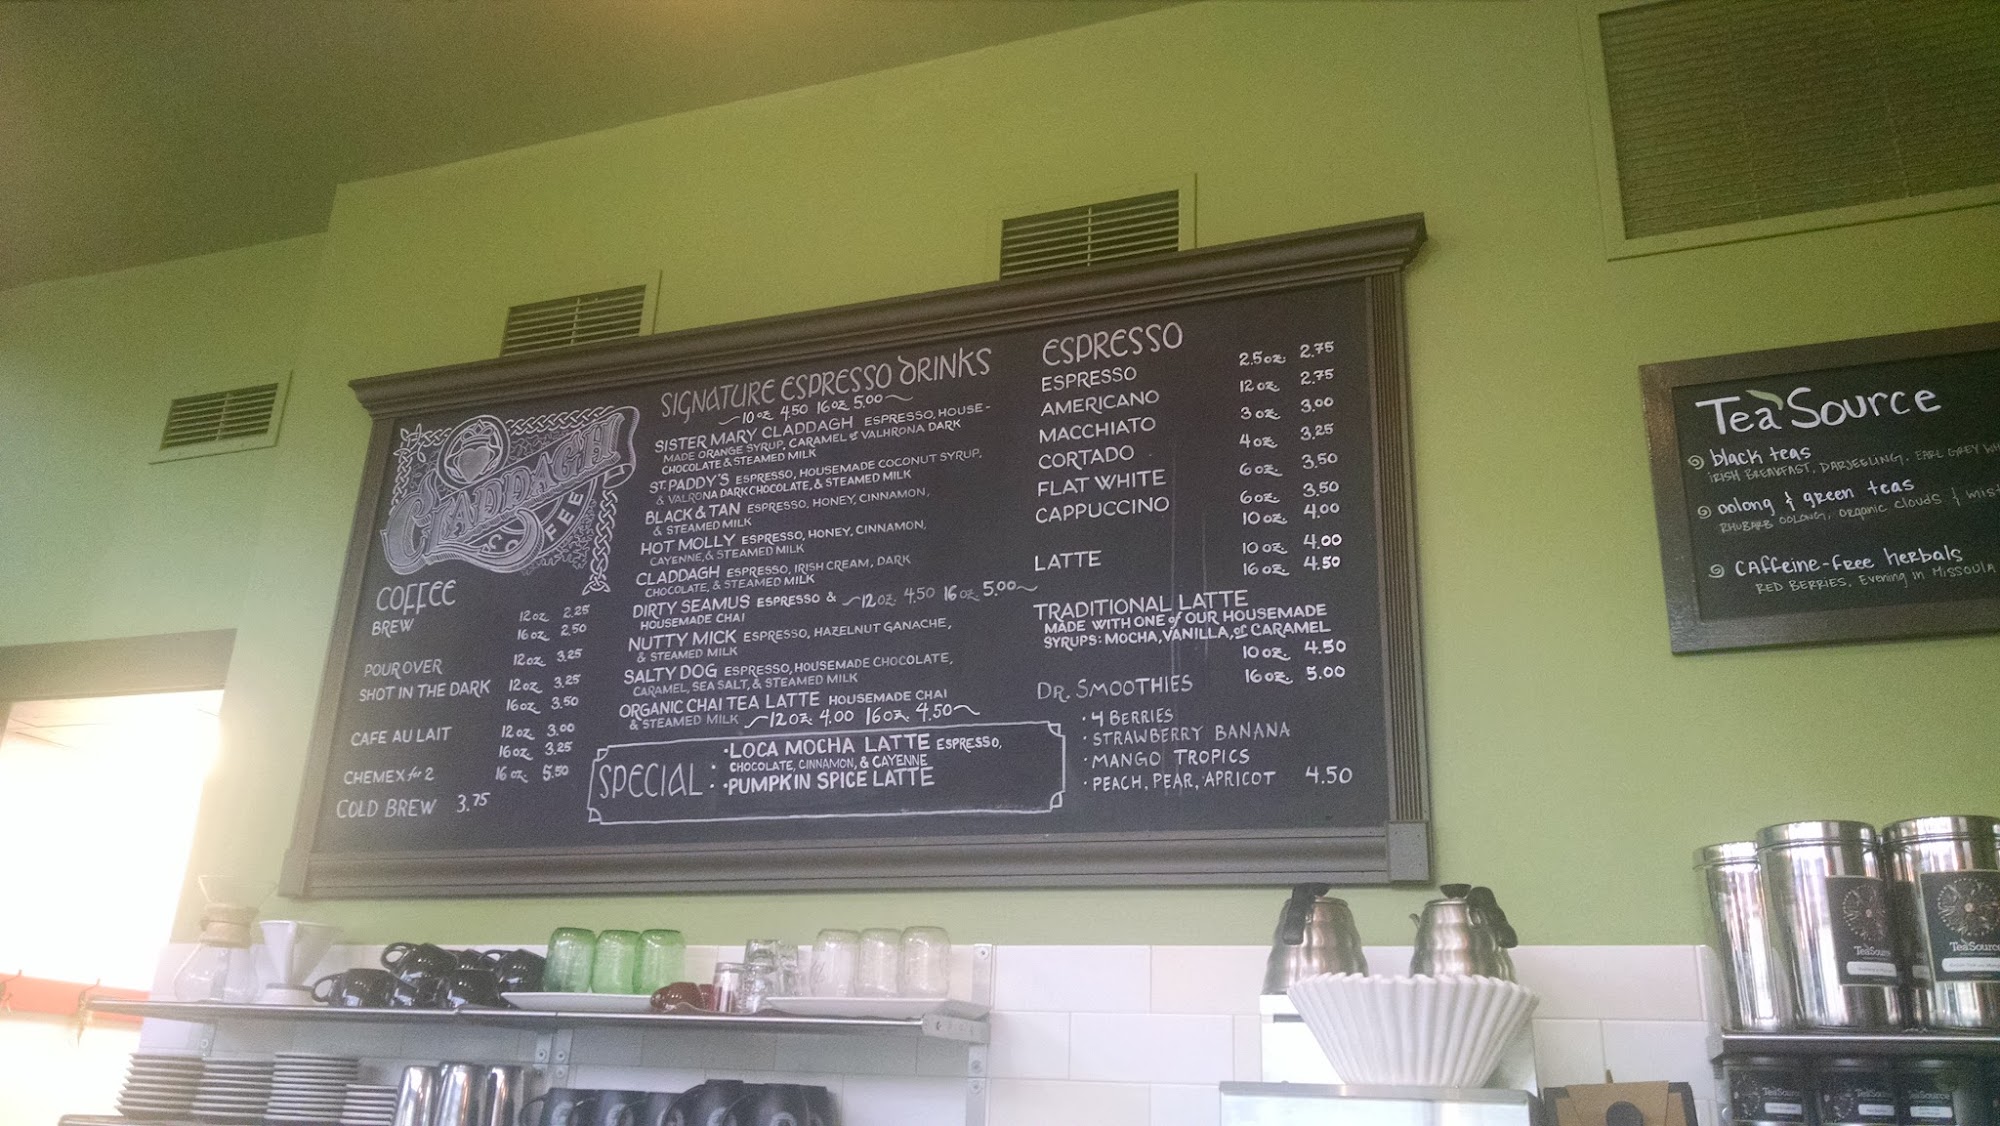 CLADDAGH
COFFEE
COFFEE
BREW 12oz. 2.25
16oz. 2.50
POUR OVER 12oz. 3.25
SHOT IN THE DARK 12oz. 3.25
16oz. 3.50
CAFE AU LAIT 12oz. 3.00
16oz. 3.25
CHEMEX for 2 16oz. 5.50
COLD BREW 3.75
SIGNATURE ESPRESSO DRINKS
10oz. 4.50 16oz. 5.00
SISTER MARY CLADDAGH ESPRESSO, HOUSE-
MADE ORANGE SYRUP, CARAMEL & VALHRONA DARK
CHOCOLATE & STEAMED MILK
ST. PADDY'S ESPRESSO, HOUSEMADE COCONUT SYRUP,
& VALRONA DARK CHOCOLATE, & STEAMED MILK
BLACK & TAN ESPRESSO, HONEY, CINNAMON,
& STEAMED MILK
HOT MOLLY ESPRESSO, HONEY, CINNAMON,
CAYENNE, & STEAMED MILK
CLADDAGH ESPRESSO, IRISH CREAM, DARK
CHOCOLATE, & STEAMED MILK
DIRTY SEAMUS ESPRESSO & 12oz. 4.50 16oz. 5.00
HOUSEMADE CHAI
NUTTY MICK ESPRESSO, HAZELNUT GANACHE,
& STEAMED MILK
SALTY DOG ESPRESSO, HOUSEMADE CHOCOLATE,
CARAMEL, SEA SALT, & STEAMED MILK
ORGANIC CHAI TEA LATTE HOUSEMADE CHAI
& STEAMED MILK 12oz. 4.00 16oz. 4.50
SPECIAL: • LOCA MOCHA LATTE ESPRESSO,
CHOCOLATE, CINNAMON, & CAYENNE
• PUMPKIN SPICE LATTE
ESPRESSO
ESPRESSO 2.5oz. 2.75
AMERICANO 12oz. 2.75
MACCHIATO 3oz. 3.00
CORTADO 4oz. 3.25
FLAT WHITE 6oz. 3.50
CAPPUCCINO 6oz. 3.50
10oz. 4.00
LATTE 10oz. 4.00
16oz. 4.50
TRADITIONAL LATTE
MADE WITH ONE of OUR HOUSEMADE
SYRUPS: MOCHA, VANILLA, or CARAMEL
10oz. 4.50
16oz. 5.00
DR. SMOOTHIES
• 4 BERRIES
• STRAWBERRY BANANA
• MANGO TROPICS
• PEACH, PEAR, APRICOT 4.50
TeaSource
black teas
IRISH BREAKFAST, DARJEELING, EARL GREY
oolong & green teas
RHUBARB OOLONG, Organic Clouds &
caffeine-free herbals
RED BERRIES, Evening in Missoula
TeaSource
TeaSource
TeaSource
TeaSource
TeaSource